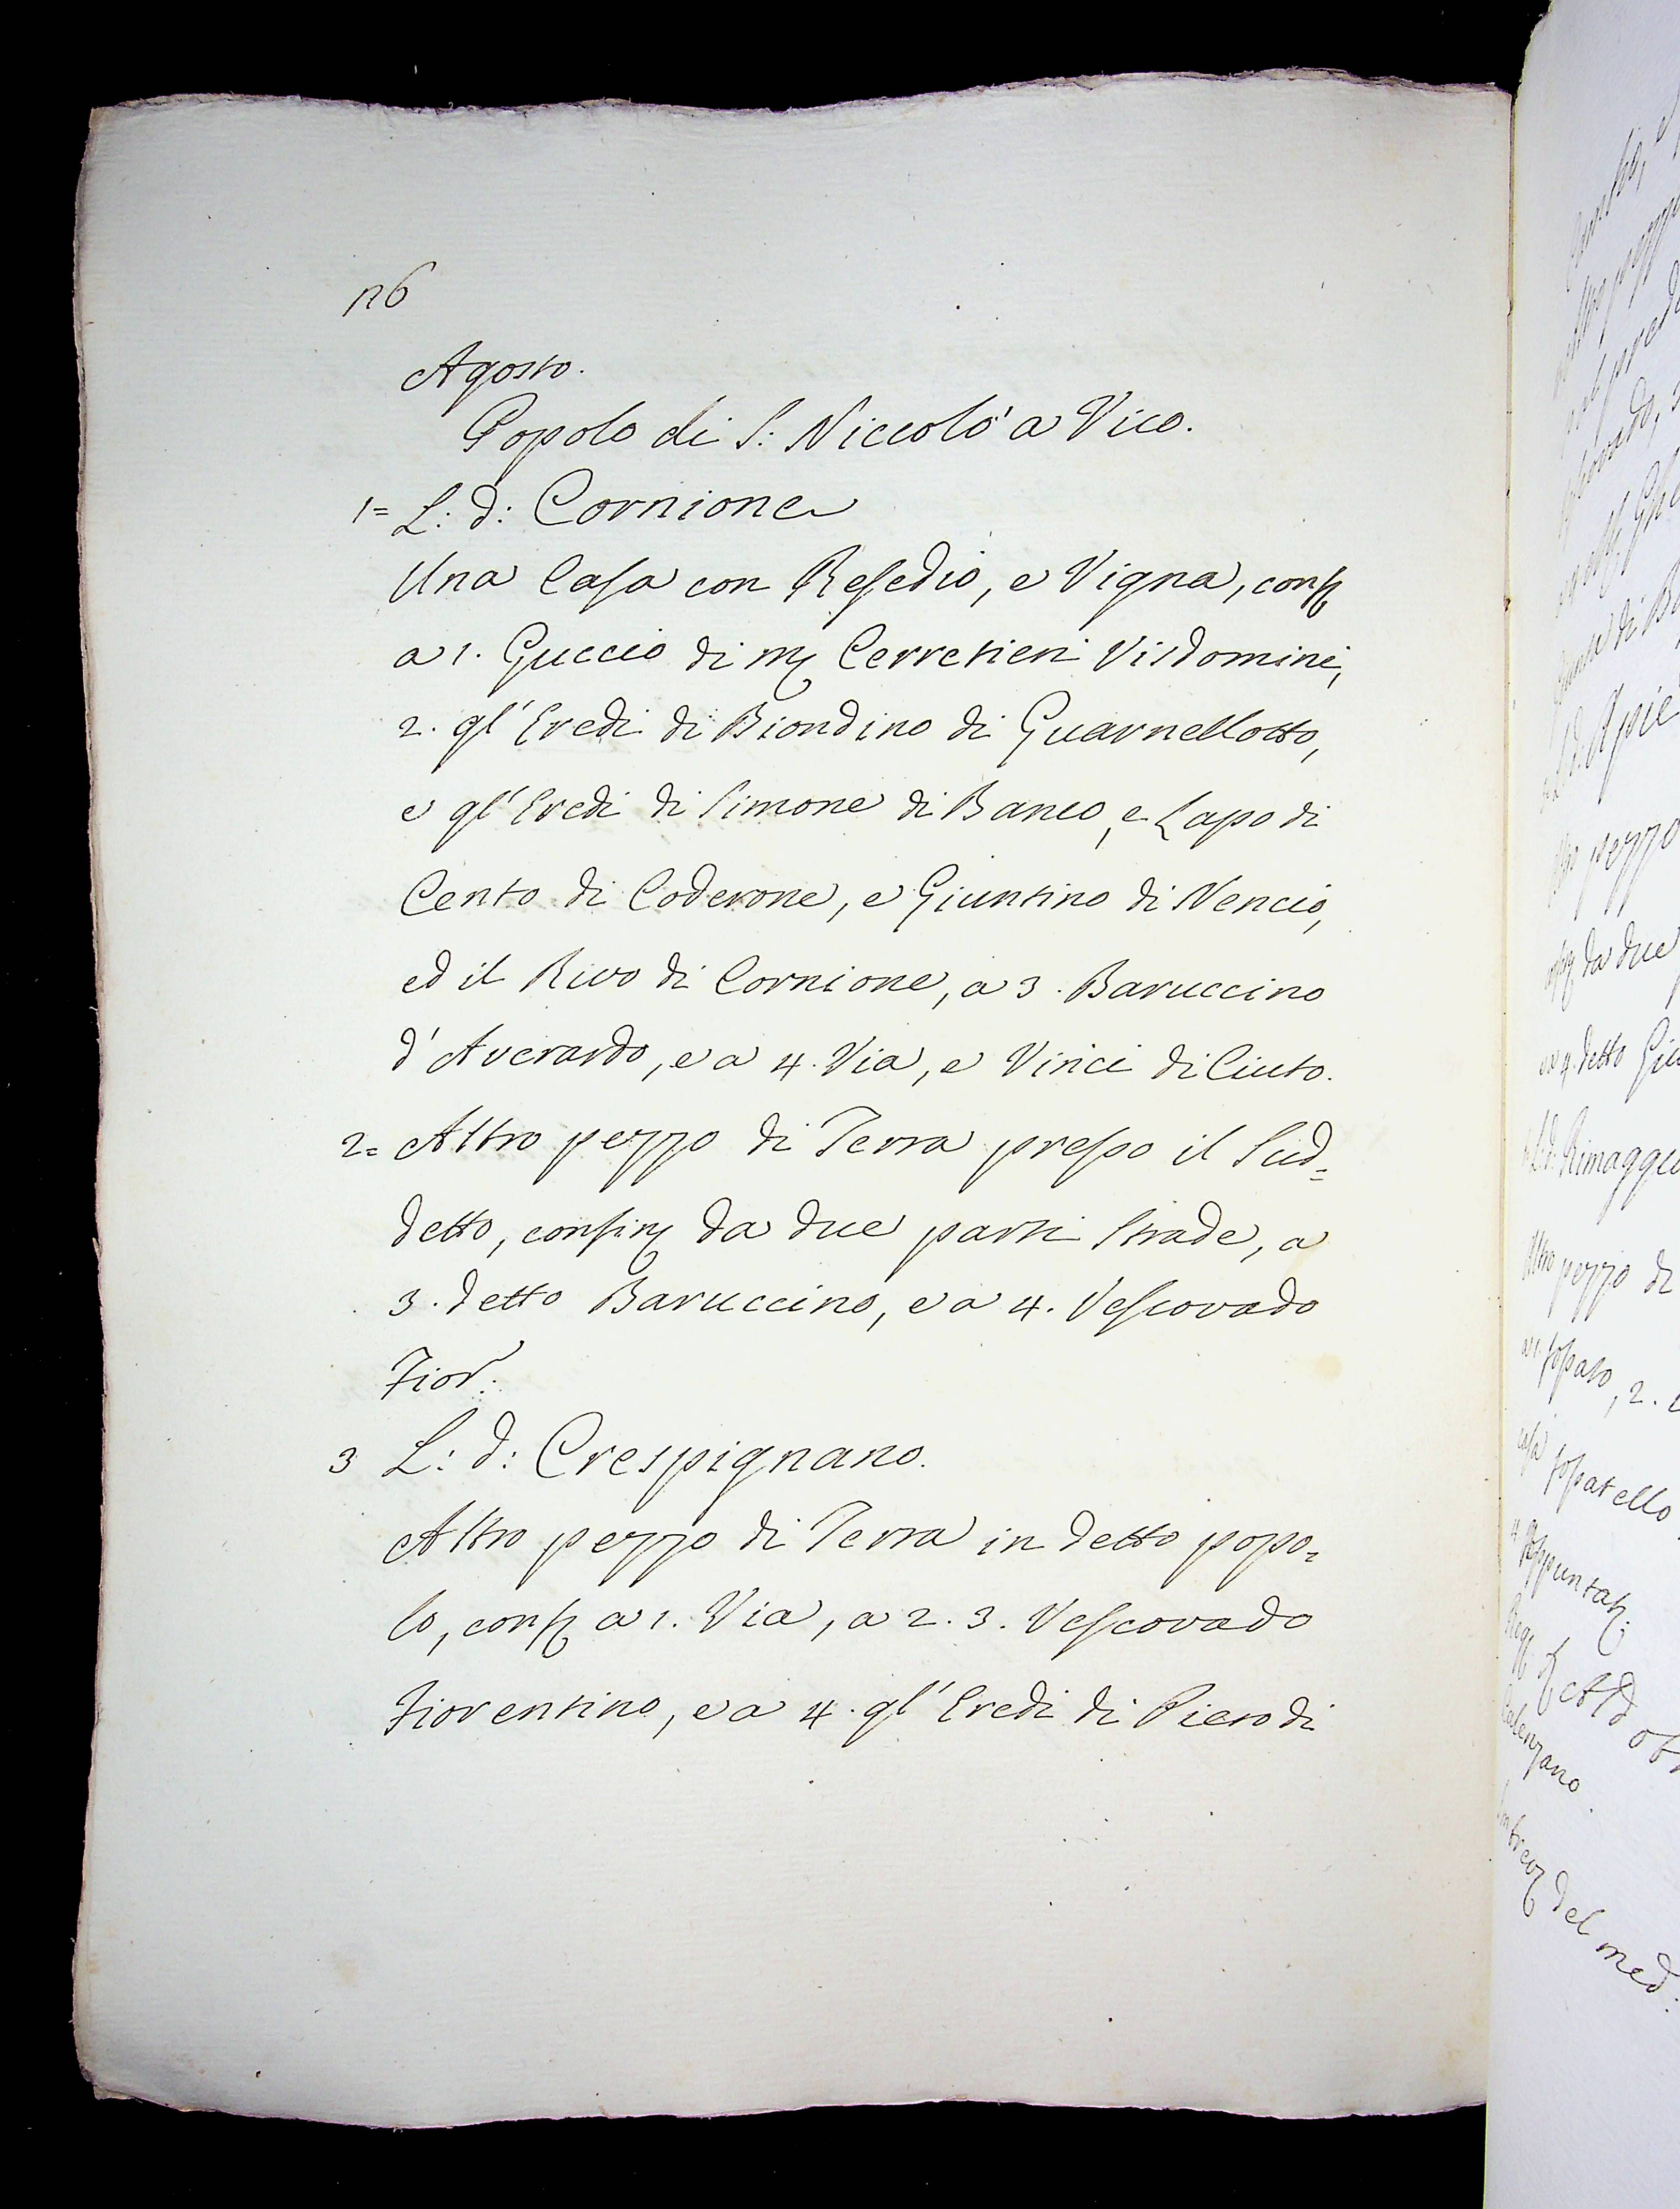 126
Agosto.
Popolo di S: Niccolò a Vico.
1= L: d: Cornione
Una Casa con Resedio, e Vigna, conf
a 1. Guccio di M Cerretieri Visdomini,
2. gl' Eredi di Biondino di Guarnellotto,
e gl' Eredi di Simone di Banco, e Lapo di
Cento di Coderone, e Giuntino di Nencio,
ed il Rivo di Cornione, a 3. Baruccino
d' Averardo, e a 4. Via, e Vinci di Ciuto.
2= Altro pezzo di Terra presso il Sud=
detto, confin da due parti Strade, a
3. detto Baruccino, e a 4. Vescovado
Fior:
3 L: d: Crespignano.
Altro pezzo di Terra in detto popo=
lo, conf a 1. Via, a 2. 3. Vescovado
Fiorentino, e a 4. gl' Eredi di Piero di
pezzo
da due
e a 4. detto
Rimaggio
Altro pezzo di
a 1. fossato, 2.
fossatello
Calenzano.
del med: